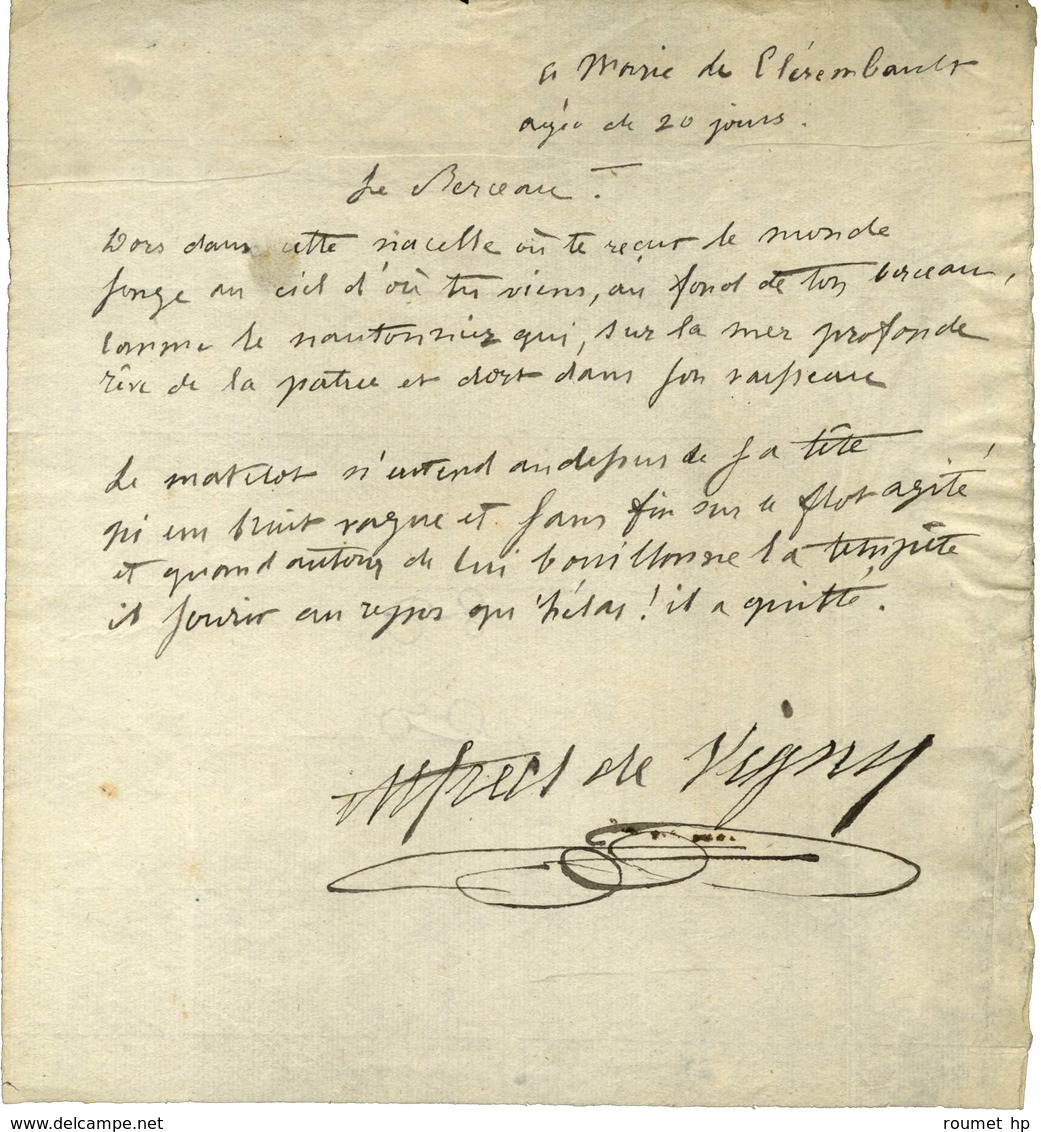 à Marie de Clérembault
agée de 20 jours.
Le Berceau.
Dors dans cette nacelle où te reçut le monde
songe au ciel d'où tu viens, au fond de ton berceau,
comme le nautonnier qui, sur la mer profonde
rêve de la patrie et dort dans son vaisseau
Le matelot n'entend au dessus de sa tête
qu'un bruit vague et sans fin sur le flot agité
et quand autour de lui bouillonne la tempête
il sourit au repos qu'hélas ! il a quitté.
Alfred de Vigny
delcampe.net
roumet hp